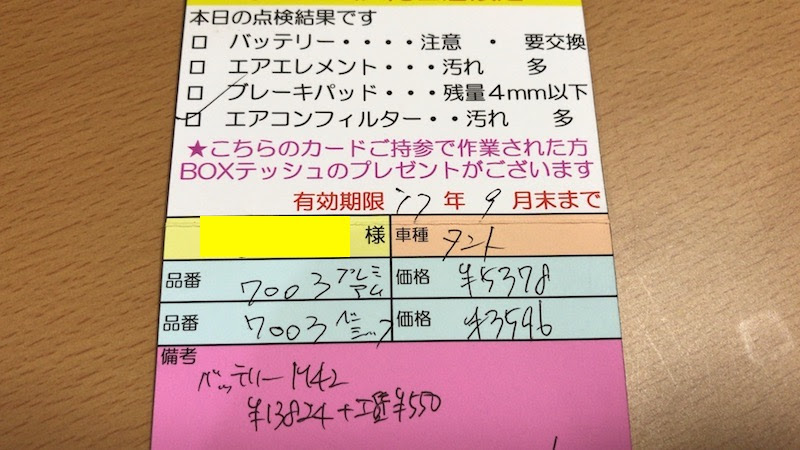 本日の点検結果です
□ バッテリー・・・・注意 ・ 要交換
□ エアエレメント・・・汚れ 多
□ ブレーキパッド・・・残量4mm以下
□ エアコンフィルター・・汚れ 多
★こちらのカードご持参で作業された方
BOXテッシュのプレゼントがございます
有効期限 '17 年 9 月末まで
様 車種 タント
品番 7003 プレミアム 価格 ¥5378
品番 7003 ベーシック 価格 ¥3596
備考
バッテリー M42
¥13824+工賃¥550